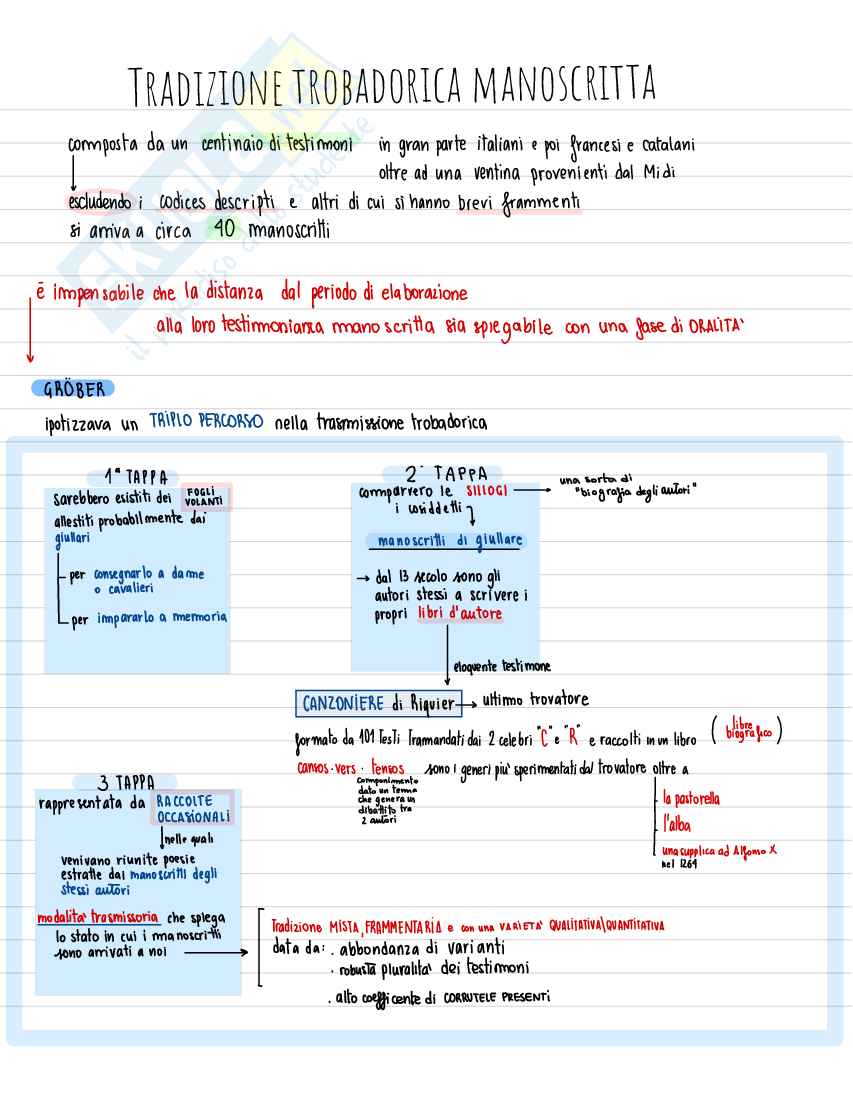 TRADIZIONE TROBADORICA MANOSCRITTA
composta da un centinaio di testimoni in gran parte italiani e poi francesi e catalani
oltre ad una ventina provenienti dal Midi
escludendo i codices descripti e altri di cui si hanno brevi frammenti
si arriva a circa 40 manoscritti
è impensabile che la distanza dal periodo di elaborazione
alla loro testimonianza manoscritta sia spiegabile con una fase di ORALITA'
GRÖBER
ipotizzava un TRIPLO PERCORSO nella trasmissione trobadorica
1ª TAPPA
sarebbero esistiti dei FOGLI VOLANTI
allestiti probabilmente dai
giullari
per consegnarlo a dame
o cavalieri
per impararlo a memoria
2ª TAPPA
comparvero le SILLOGI
una sorta di
"biografia degli autori"
i cosiddetti
manoscritti di giullare
dal 13 secolo sono gli
autori stessi a scrivere i
propri libri d'autore
eloquente testimone
CANZONIERE di Riquier ultimo trovatore
formato da 101 Testi Tramandati dai 2 celebri "C" e "R" e raccolti in un libro (libre biografico)
cansos · vers · tensos sono i generi piu' sperimentati dal trovatore oltre a
componimento
dato un tema
che genera un
dibattito tra
2 autori
la pastorella
l'alba
una supplica ad Alfonso X
nel 1264
3 TAPPA
rappresentata da RACCOLTE
OCCASIONALI
nelle quali
venivano riunite poesie
estratte dai manoscritti degli
stessi autori
modalita' trasmissoria che spiega
lo stato in cui i manoscritti
sono arrivati a noi
Tradizione MISTA, FRAMMENTARIA e con una VARIETA' QUALITATIVA\QUANTITATIVA
data da: . abbondanza di varianti
. robusta pluralita' dei testimoni
. alto coefficente di CORRUTELE PRESENTI
skuola.net
il paradiso dello studente